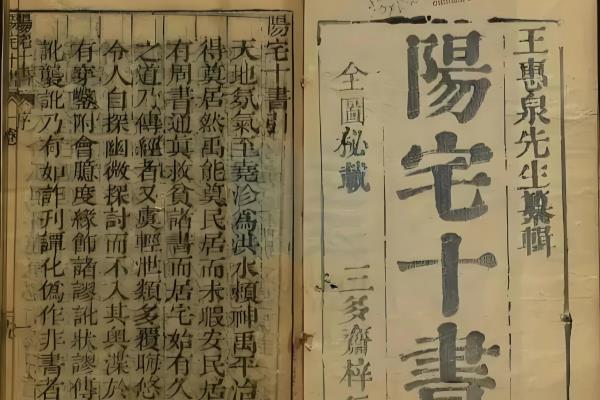 王惠泉先生纂輯
陽宅十書
全圖秘載
三多齋梓
陽宅十書引
天地氛氣至嘉沴為洪水頼神禹平治
得奠居然禹能奠民居而未暇安民居
有周書通真救貧諸書而居宅始有久
之道乃傳經者又虞輕泄類多覆晦悠
令人自探幽微探討而不入其奥渫於
有穿鑿附會臆度緣飾諸謬訛狀謬傳
訛襲訛乃有如詐刋譚化僞作非書者
陽宅十書
序